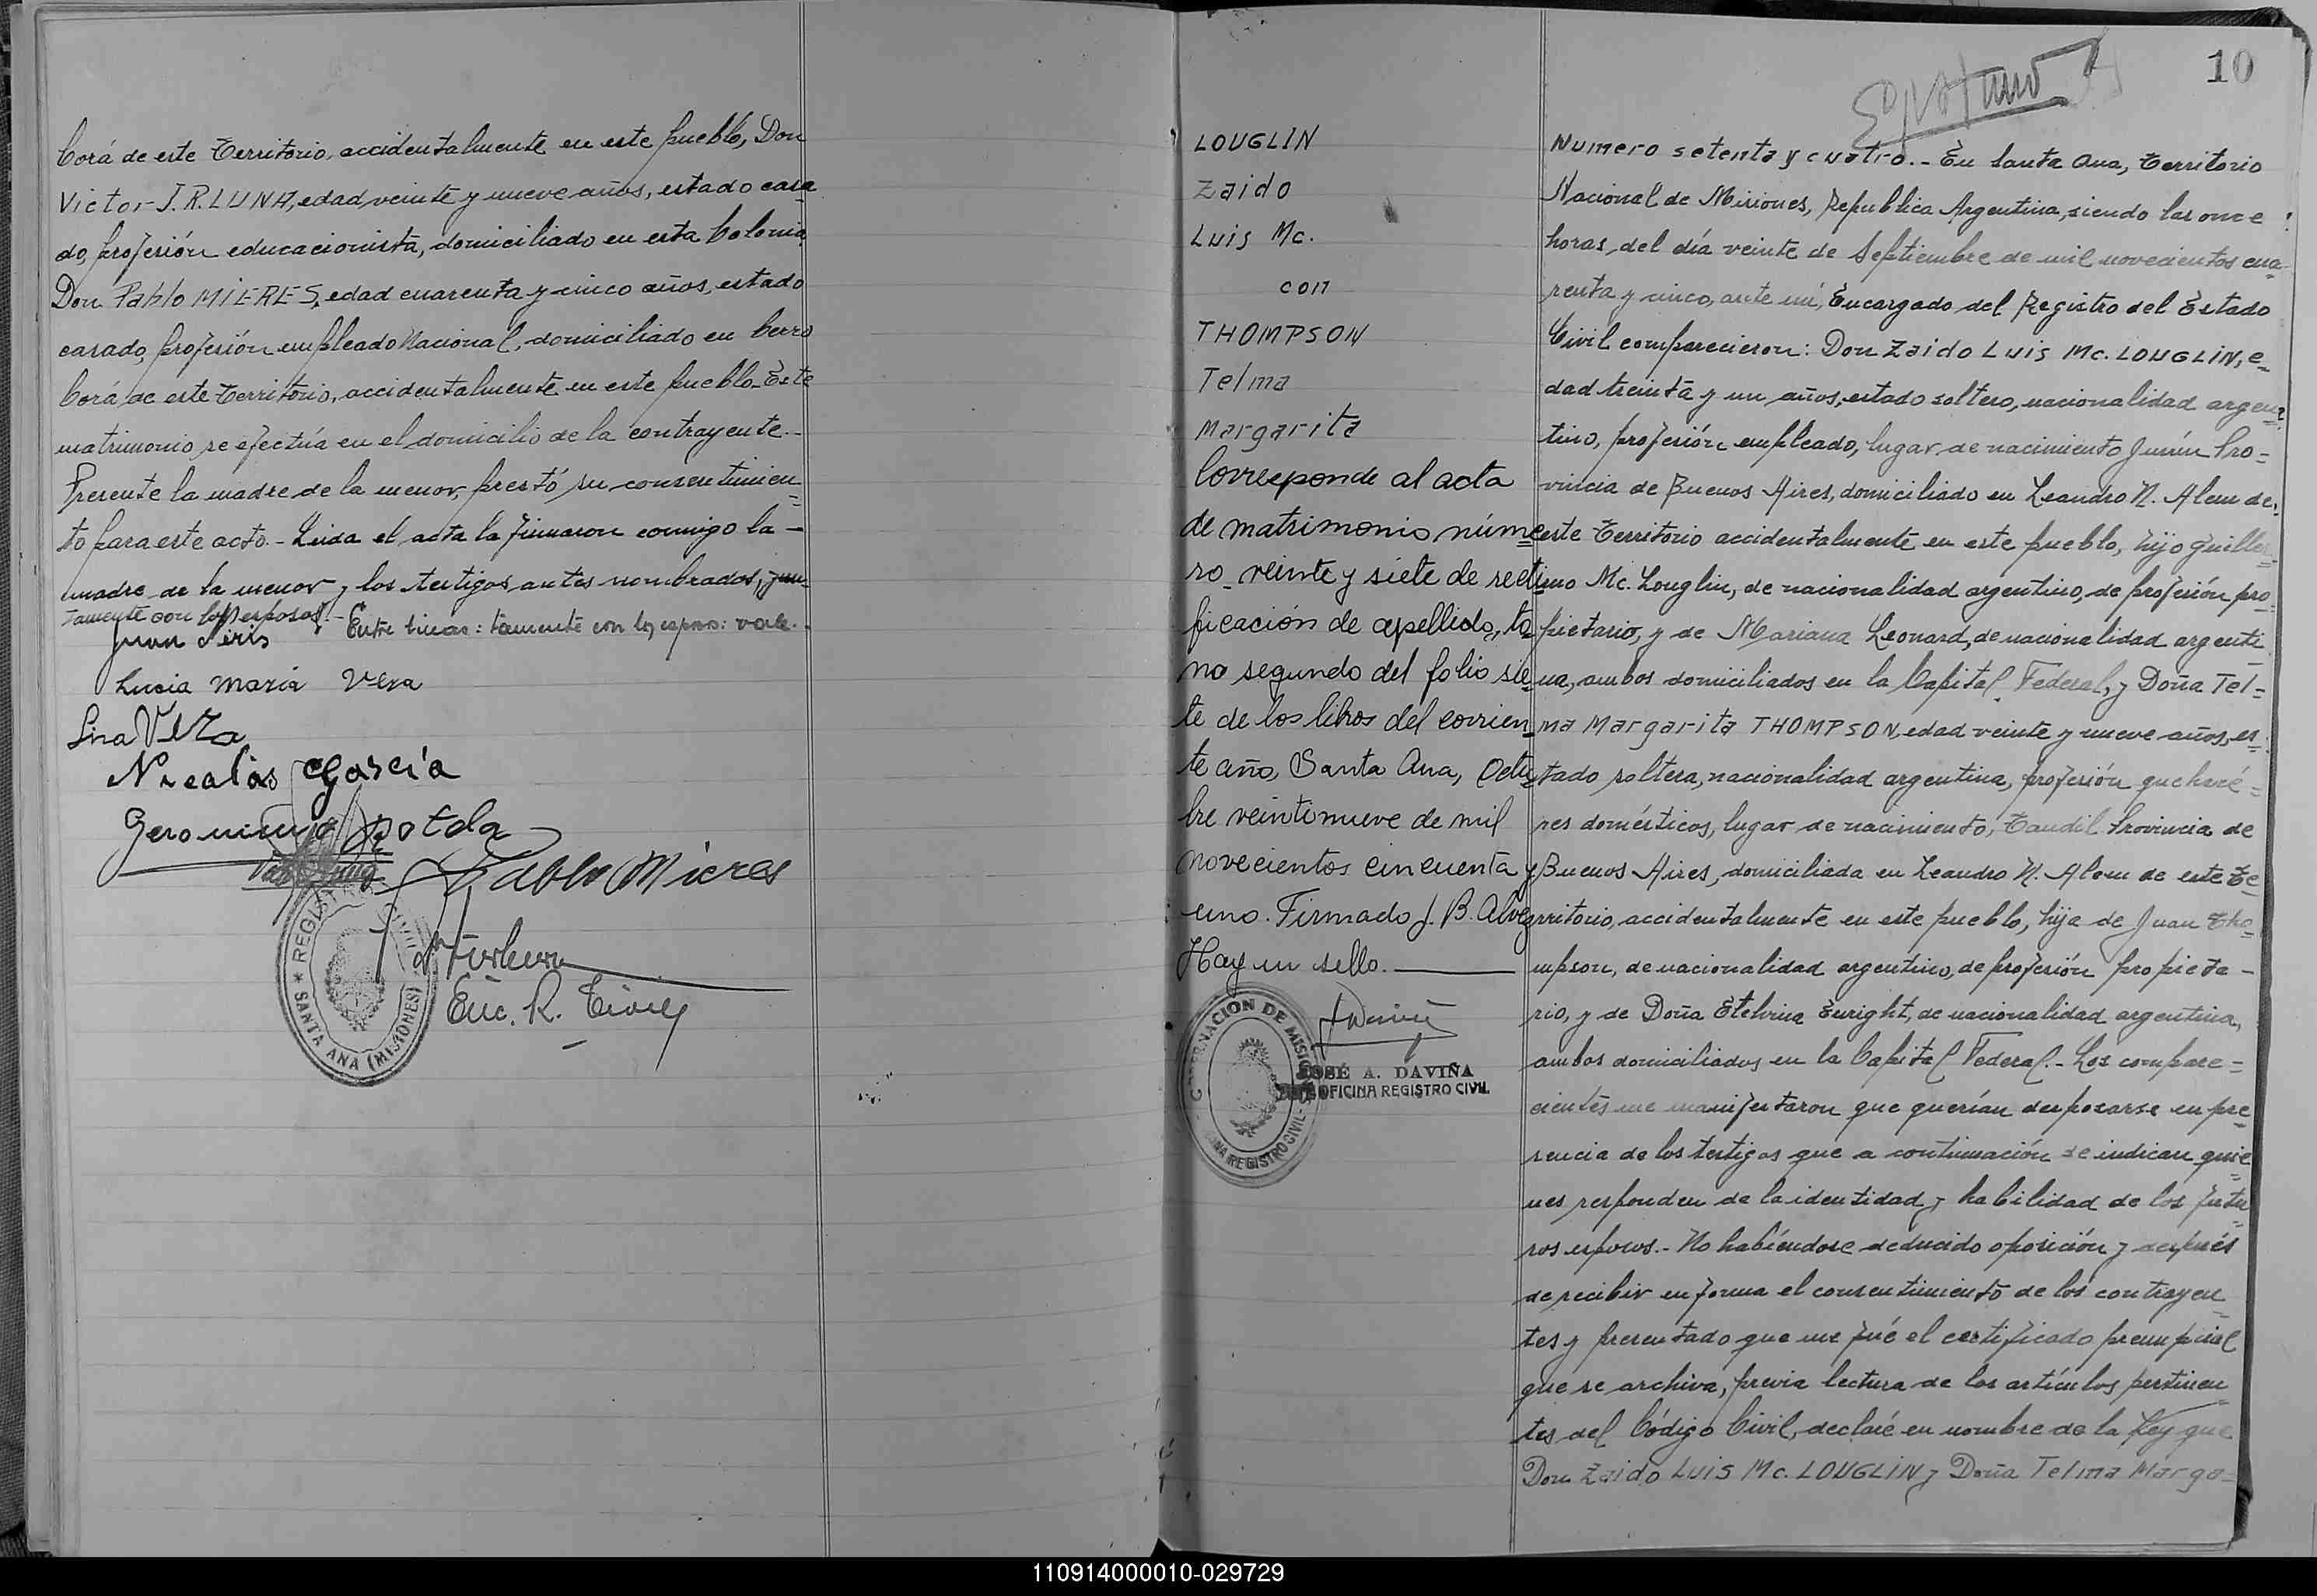 Corá de este Territorio, accidentalmente en este pueblo, Don
Victor J.R. LUNA, edad veinte y nueve años, estado casa
do, profesión educacionista, domiciliado en esta Colonia
Don Pablo MIERES, edad cuarenta y cinco años, estado
casado, profesión empleado Nacional, domiciliado en Cerro
Corá de este Territorio, accidentalmente en este pueblo. Este
matrimonio se efectúa en el domicilio de la contrayente.-
Presente la madre de la menor, prestó su consentimien=
to para este acto.- Leida el acta la firmaron conmigo la -
madre de la menor y los testigos antes nombrados, jun=
tamente con los esposos.- Entre lineas: tamente con los esposos: vale.
Lucia Maria Vera
Lina Vera
Nicalas Garcia
Pablo Mieres
REGISTRO CIVIL
SANTA ANA (MISIONES)
10
LOUGLIN
Zaido
Luis Mc.
con
THOMPSON
Telma
Margarita
Corresponde al acta
de matrimonio núme
ro veinte y siete de recti
ficación de apellido, to
mo segundo del folio sie
te de los libros del corrien
te año, Santa Ana, Octu
bre veintinueve de mil
novecientos cincuenta y
uno. Firmado J. B. Alvez
Hay un sello.
GOBERNACION DE MISIONES
REGISTRO CIVIL
JOSÉ A. DAVIÑA
OFICINA REGISTRO CIVIL
Numero setenta y cuatro.- En Santa Ana, Territorio
Nacional de Misiones, Republica Argentina, siendo las once
horas, del día veinte de Septiembre de mil novecientos cua
renta y cinco, ante mí, Encargado del Registro del Estado
Civil comparecieron: Don Zaido Luis Mc. LOUGLIN, e=
dad treinta y un años, estado soltero, nacionalidad argen=
tino, profesión empleado, lugar de nacimiento Junín Pro=
vincia de Buenos Aires, domiciliado en Leandro N. Alem de
este Territorio accidentalmente en este pueblo, hijo Guiller=
mo Mc. Louglin, de nacionalidad argentino, de profesión pro=
pietario, y de Mariana Leonard, de nacionalidad argenti
na, ambos domiciliados en la Capital Federal, y Doña Tel=
ma Margarita THOMPSON, edad veinte y nueve años, es=
tado soltera, nacionalidad argentina, profesión quehacé=
res domésticos, lugar de nacimiento, Tandil Provincia de
Buenos Aires, domiciliada en Leandro N. Alem de este Te
rritorio, accidentalmente en este pueblo, hija de Juan Tho=
mpson, de nacionalidad argentino, de profesión propieta -
rio, y de Doña Etelvina Enright, de nacionalidad argentina,
ambos domiciliados en la Capital Federal.- Los compare=
cientes me manifestaron que querían desposarse en pre=
sencia de los testigos que a continuación se indican quie=
nes responden de la identidad y habilidad de los futu=
ros esposos.- No habíendose deducido oposición y después
de recibir en forma el consentimiento de los contrayen
tes y presentado que me fué el certificado prenupcial
que se archiva, previa lectura de los artículos pertinen=
tes del Código Civil, declaré en nombre de la Ley que
Don Zaido Luis Mc. LOUGLIN y Doña Telma Marga=
110914000010-029729